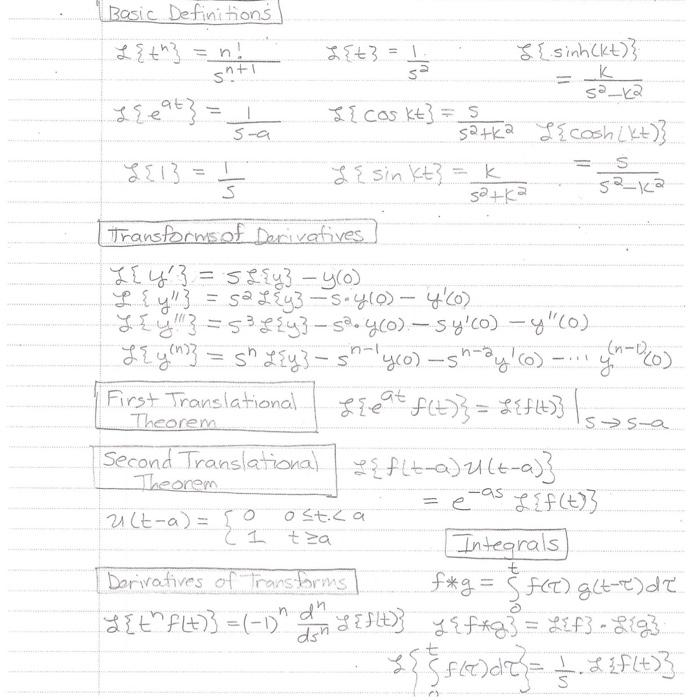 Basic Definitions
ℒ{tⁿ} = n!/sⁿ⁺¹   ℒ{t} = 1/s²   ℒ{sinh(kt)} = k/(s²-k²)
ℒ{e^(at)} = 1/(s-a)   ℒ{cos kt} = s/(s²+k²)   ℒ{cosh(kt)} = s/(s²-k²)
ℒ{1} = 1/s   ℒ{sin kt} = k/(s²+k²)
Transforms of Derivatives
ℒ{y'} = sℒ{y} - y(0)
ℒ{y''} = s²ℒ{y} - s·y(0) - y'(0)
ℒ{y'''} = s³ℒ{y} - s²·y(0) - sy'(0) - y''(0)
ℒ{y⁽ⁿ⁾} = sⁿℒ{y} - sⁿ⁻¹y(0) - sⁿ⁻²y'(0) - ... y⁽ⁿ⁻¹⁾(0)
First Translational Theorem
ℒ{e^(at) f(t)} = ℒ{f(t)}|s→s-a
Second Translational Theorem
ℒ{f(t-a)𝒰(t-a)}
= e^(-as) ℒ{f(t)}
𝒰(t-a) = { 0   0≤t<a
1   t≥a
Integrals
Derivatives of Transforms
f*g = ∫₀ᵗ f(τ) g(t-τ)dτ
ℒ{tⁿf(t)} = (-1)ⁿ dⁿ/dsⁿ ℒ{f(t)}   ℒ{f*g} = ℒ{f}·ℒ{g}
ℒ{∫₀ᵗ f(τ)dτ} = 1/s · ℒ{f(t)}